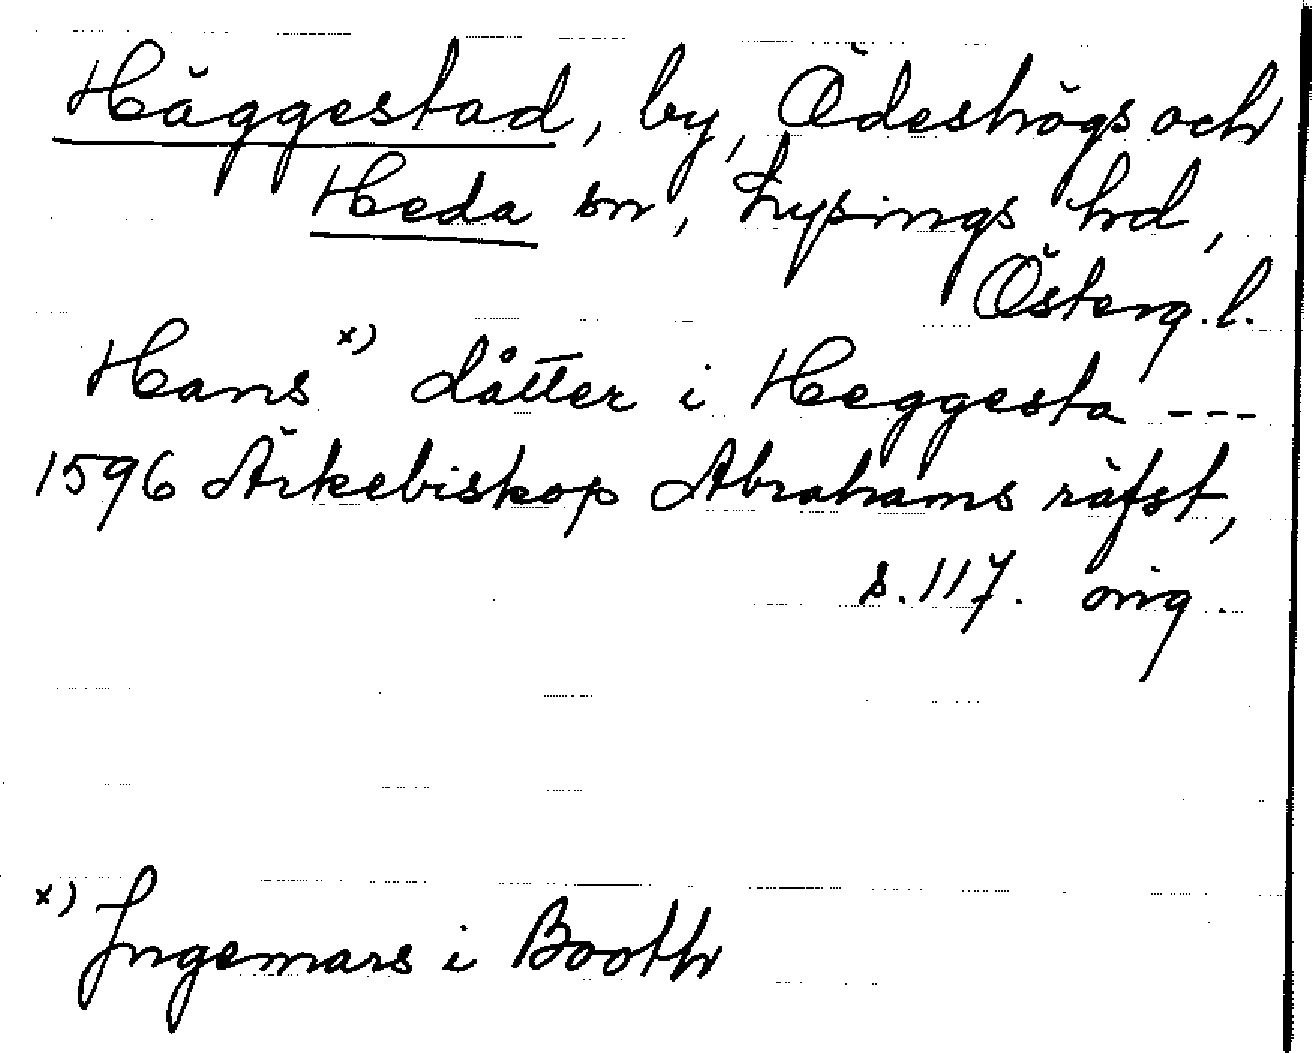 Häggestad, by, Ödeshögs och
Heda sn, Lysings hd,
Österg.l.
Hans x) dåtter i Heggesta ---
1596 Ärkebiskop Abrahams räfst,
s. 117. orig.
x) Ingemars i Booth